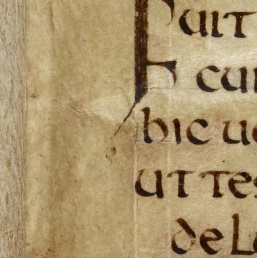 uit
cui
hic uo
ut tes
de l